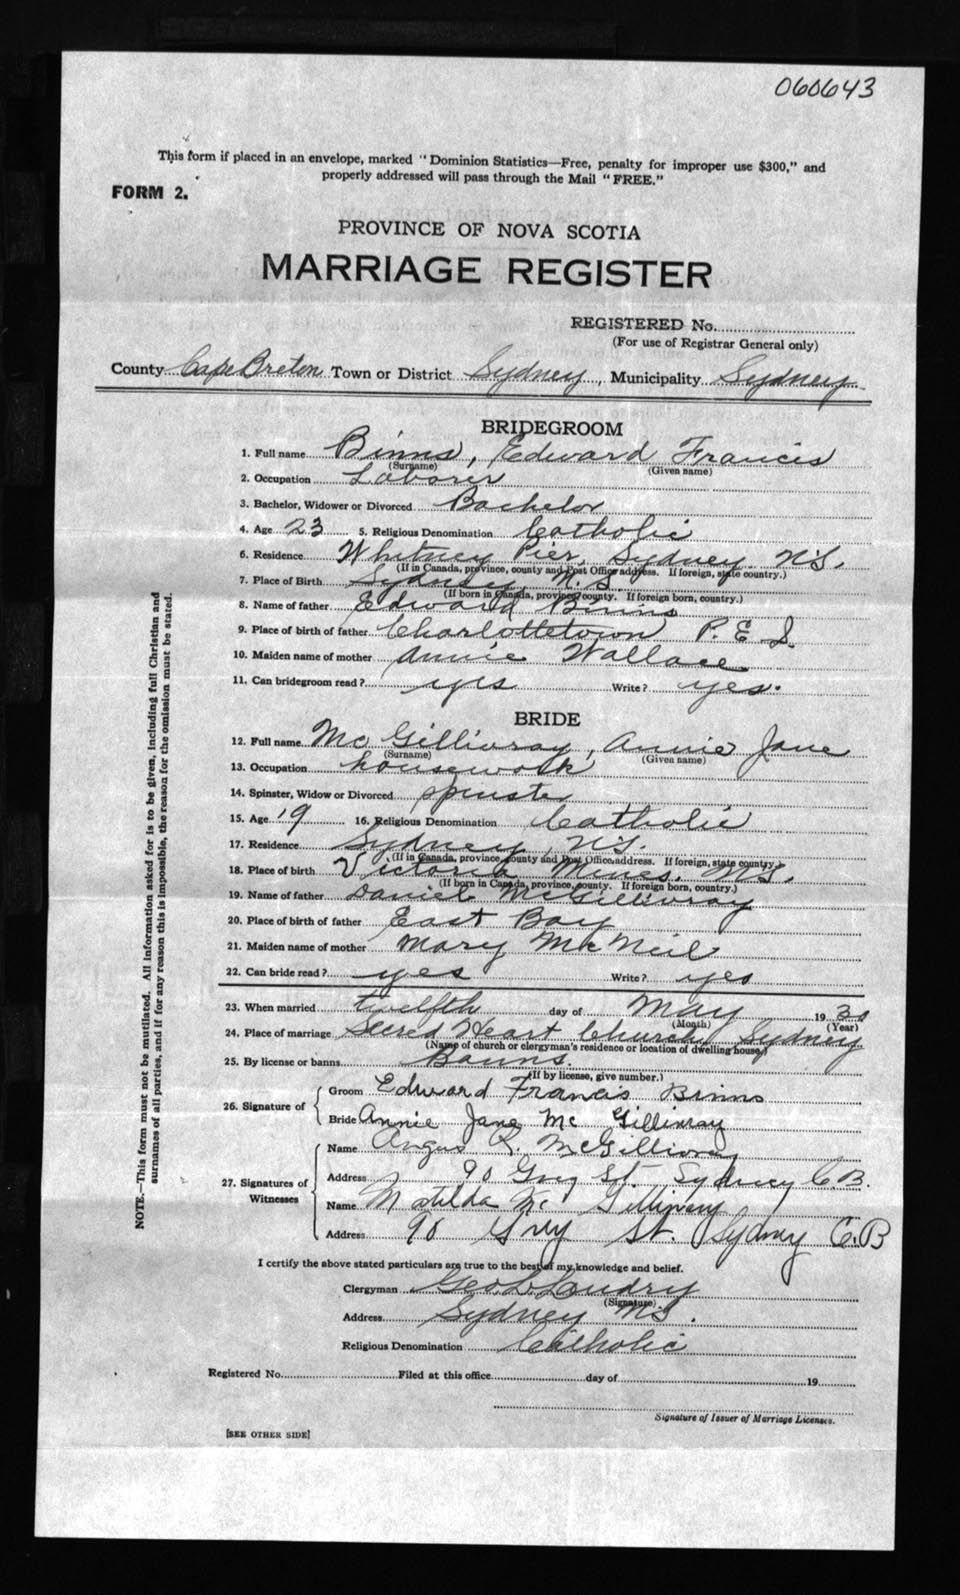 060643
This form if placed in an envelope, marked "Dominion Statistics—Free, penalty for improper use $300," and
properly addressed will pass through the Mail "FREE."
FORM 2.
PROVINCE OF NOVA SCOTIA
MARRIAGE REGISTER
REGISTERED No.
(For use of Registrar General only)
County Cape Breton Town or District Sydney, Municipality Sydney
BRIDEGROOM
1. Full name Binns, Edward Francis
(Surname) (Given name)
2. Occupation Laborer
3. Bachelor, Widower or Divorced Bachelor
4. Age 23 5. Religious Denomination Catholic
6. Residence Whitney Pier, Sydney N.S.
(If in Canada, province, county and Post Office address. If foreign, state country.)
7. Place of Birth Sydney N.S.
(If born in Canada, province, county. If foreign born, country.)
8. Name of father Edward Binns
9. Place of birth of father Charlottetown P.E.I.
10. Maiden name of mother Annie Wallace
11. Can bridegroom read? yes Write? yes.
BRIDE
12. Full name McGillivray, Annie Jane
(Surname) (Given name)
13. Occupation housework
14. Spinster, Widow or Divorced spinster
15. Age 19 16. Religious Denomination Catholic
17. Residence Sydney, N.S.
(If in Canada, province, county and Post Office address. If foreign, state country.)
18. Place of birth Victoria Mines, N.S.
(If born in Canada, province, county. If foreign born, country.)
19. Name of father Daniel McGillivray
20. Place of birth of father East Bay
21. Maiden name of mother Mary McNeil
22. Can bride read? yes Write? yes
23. When married twelfth day of May 1930
(Month) (Year)
24. Place of marriage Sacred Heart Church, Sydney
(Name of church or clergyman's residence or location of dwelling house.)
25. By license or banns Banns.
(If by license, give number.)
26. Signature of
Groom Edward Francis Binns
Bride Annie Jane McGillivray
27. Signatures of Witnesses
Name Angus R. McGillivray
Address 90 Grey St. Sydney C.B.
Name Matilda McGillivray
Address 90 Grey St. Sydney C.B
I certify the above stated particulars are true to the best of my knowledge and belief.
Clergyman Geo. L. Landry
(Signature)
Address Sydney N.S.
Religious Denomination Catholic
Registered No. Filed at this office day of 19
Signature of Issuer of Marriage Licenses.
[SEE OTHER SIDE]
NOTE.—This form must not be mutilated. All information asked for is to be given, including full Christian and
surnames of all parties, and if for any reason this is impossible, the reason for the omission must be stated.